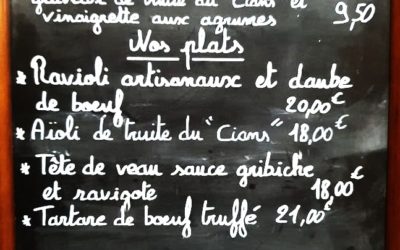 de truite du Cians et
vinaigrette aux agrumes 9,50
Nos plats
* Ravioli artisanaux et daube
de boeuf 20,00€
* Aïoli de truite du "Cians" 18,00€
* Tête de veau sauce gribiche
et ravigote 18,00€
* Tartare de boeuf truffé 21,00€